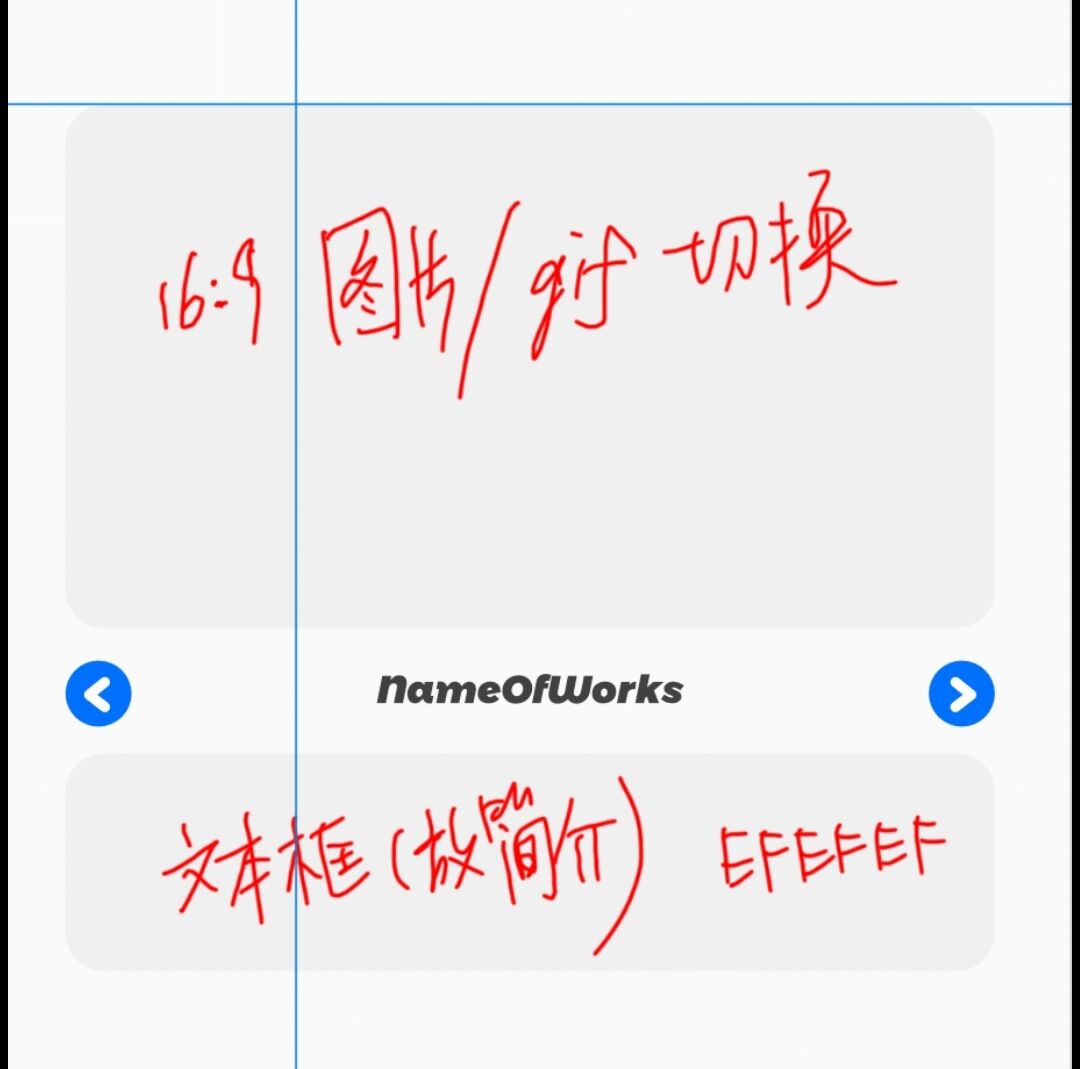 16:9 图片/gif 切换
NameOfWorks
文本框(放简介) EFEFEF